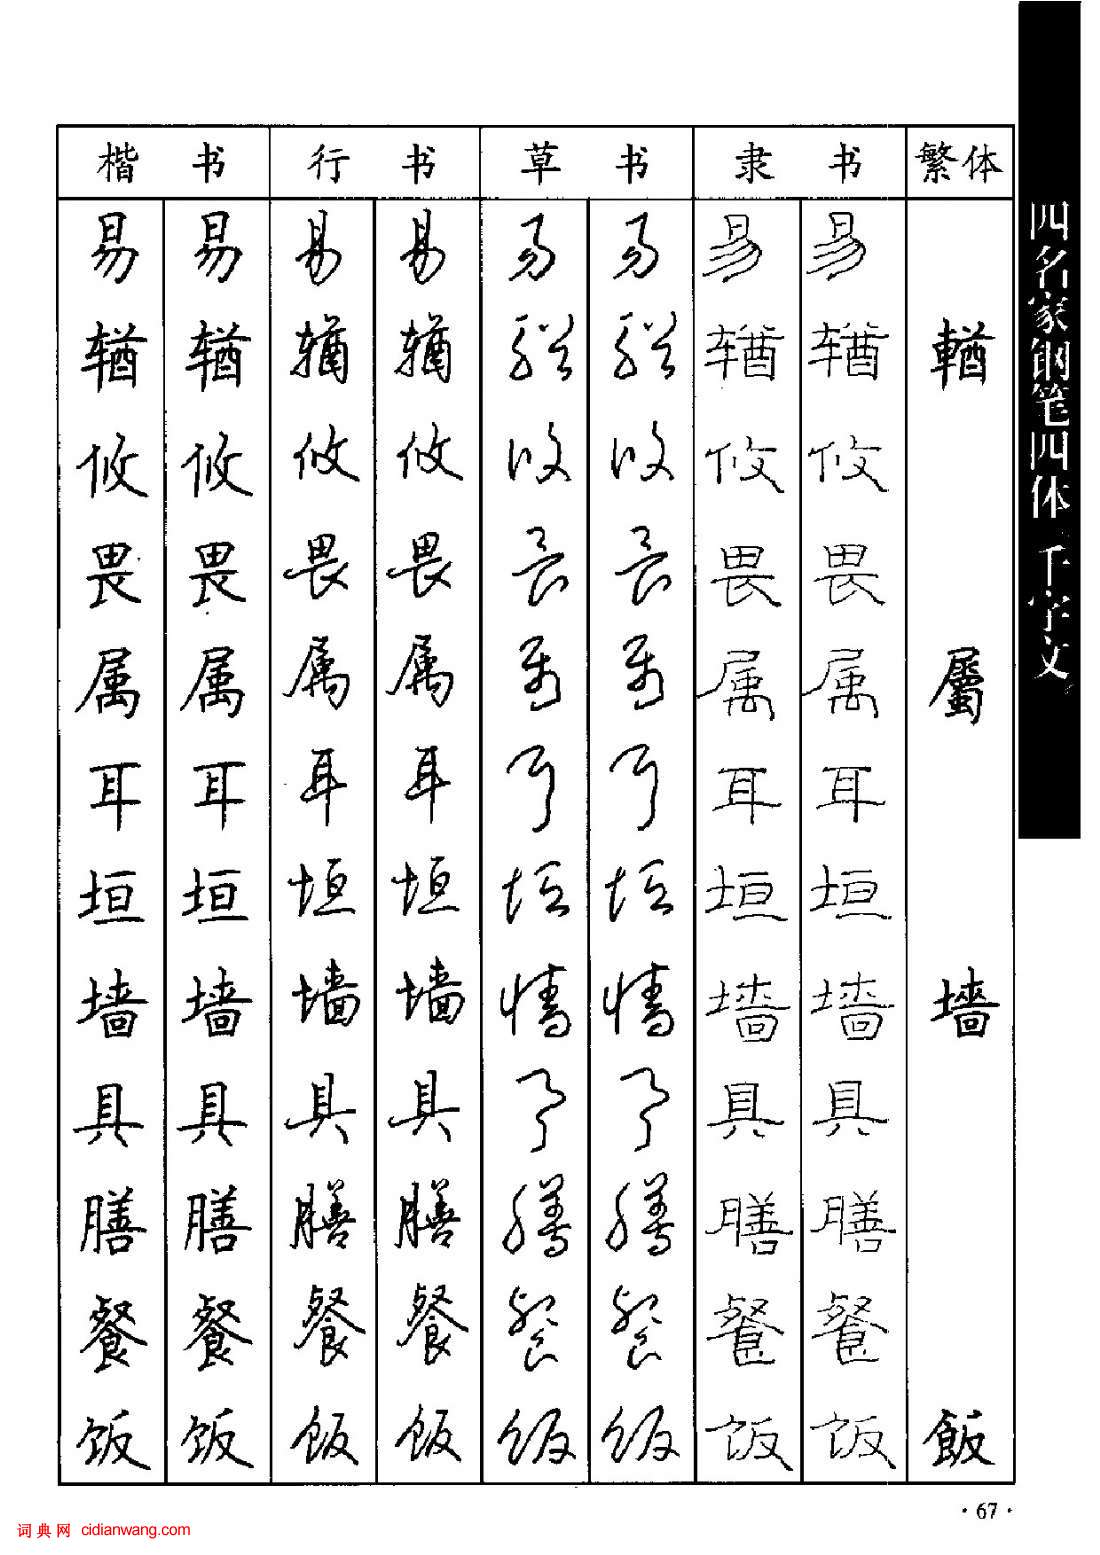 楷书 行书 草书 隶书 繁体
易 易 易 易 易 易 易 易
𬨎 𬨎 𬨎 𬨎 𬨎 𬨎 𬨎 𬨎 輶
攸 攸 攸 攸 攸 攸 攸 攸
畏 畏 畏 畏 畏 畏 畏 畏
属 属 属 属 属 属 属 属 屬
耳 耳 耳 耳 耳 耳 耳 耳
垣 垣 垣 垣 垣 垣 垣 垣
墙 墙 墙 墙 墙 墙 墙 墙 墻
具 具 具 具 具 具 具 具
膳 膳 膳 膳 膳 膳 膳 膳
餐 餐 餐 餐 餐 餐 餐 餐
饭 饭 饭 饭 饭 饭 饭 饭 飯
四名家钢笔四体 千字文
·67·
词典网 cidianwang.com